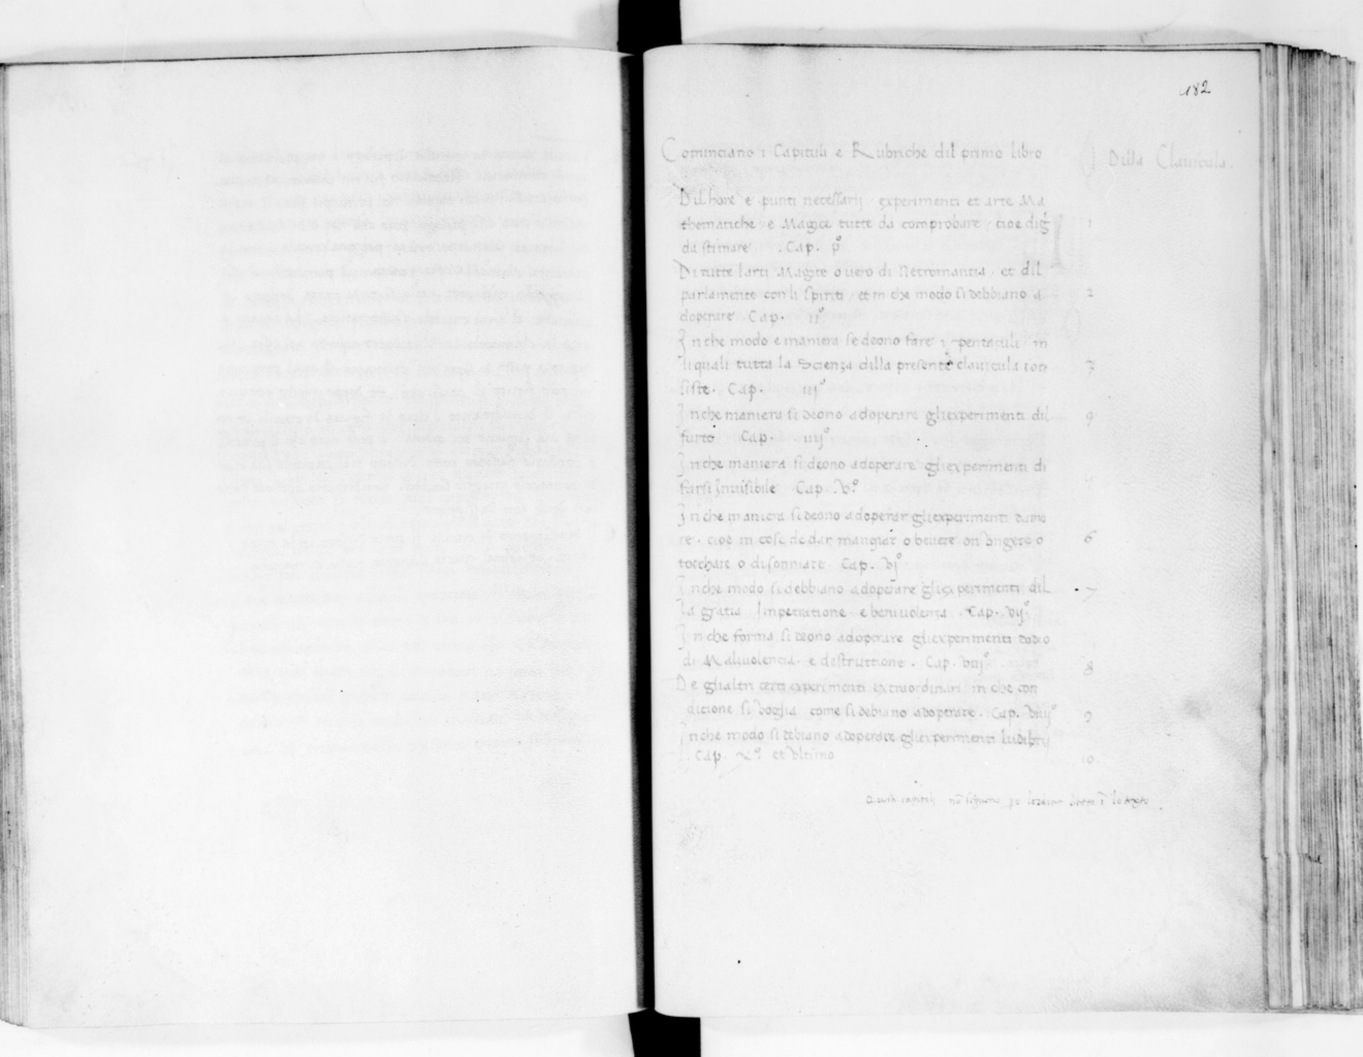 182
Cominciano i Capituli e Rubriche dil primo libro Dilla Clauicula.
Dil hore e punti necessarij experimenti et arte Ma
thematiche e Magice tutte da comprobare cioe dig
da stimare . Cap. pº 1
Di tutte larti Magice o uero di Necromantia et dil
parlamento con li spiriti et in che modo si debbiano a 2
doperare . Cap. ijº
In che modo e maniera se deono fare i pentaculi in
li quali tutta la Scienza dilla presente clauicula con 3
siste. Cap. iijº
In che maniera si deono adoperare gli experimenti dil 4
furto Cap. iiijº
In che maniera si deono adoperare gli experimenti di
farsi Inuisibile Cap. Vº 5
In che maniera si deono adoperar gli experimenti damo
re. cioe in cose de dar mangiar o beuere o o 6
tocchare o disonniare Cap. Vjº
In che modo si debbiano adoperare gli experimenti dil 7
la gratia Impetratione e beniuolenta . Cap. Vijº
In che forma si deono adoperare gli experimenti dodio
di Maliuolencia e destruttione . Cap. Viijº 8
De gli altri certi experimenti extraordinari in che con
ditione si Voglia come si debiano adoperare. Cap. Viiijº 9
In che modo si debiano adoperare gli experimenti
Cap. Xº et Vltimo 10
capitoli